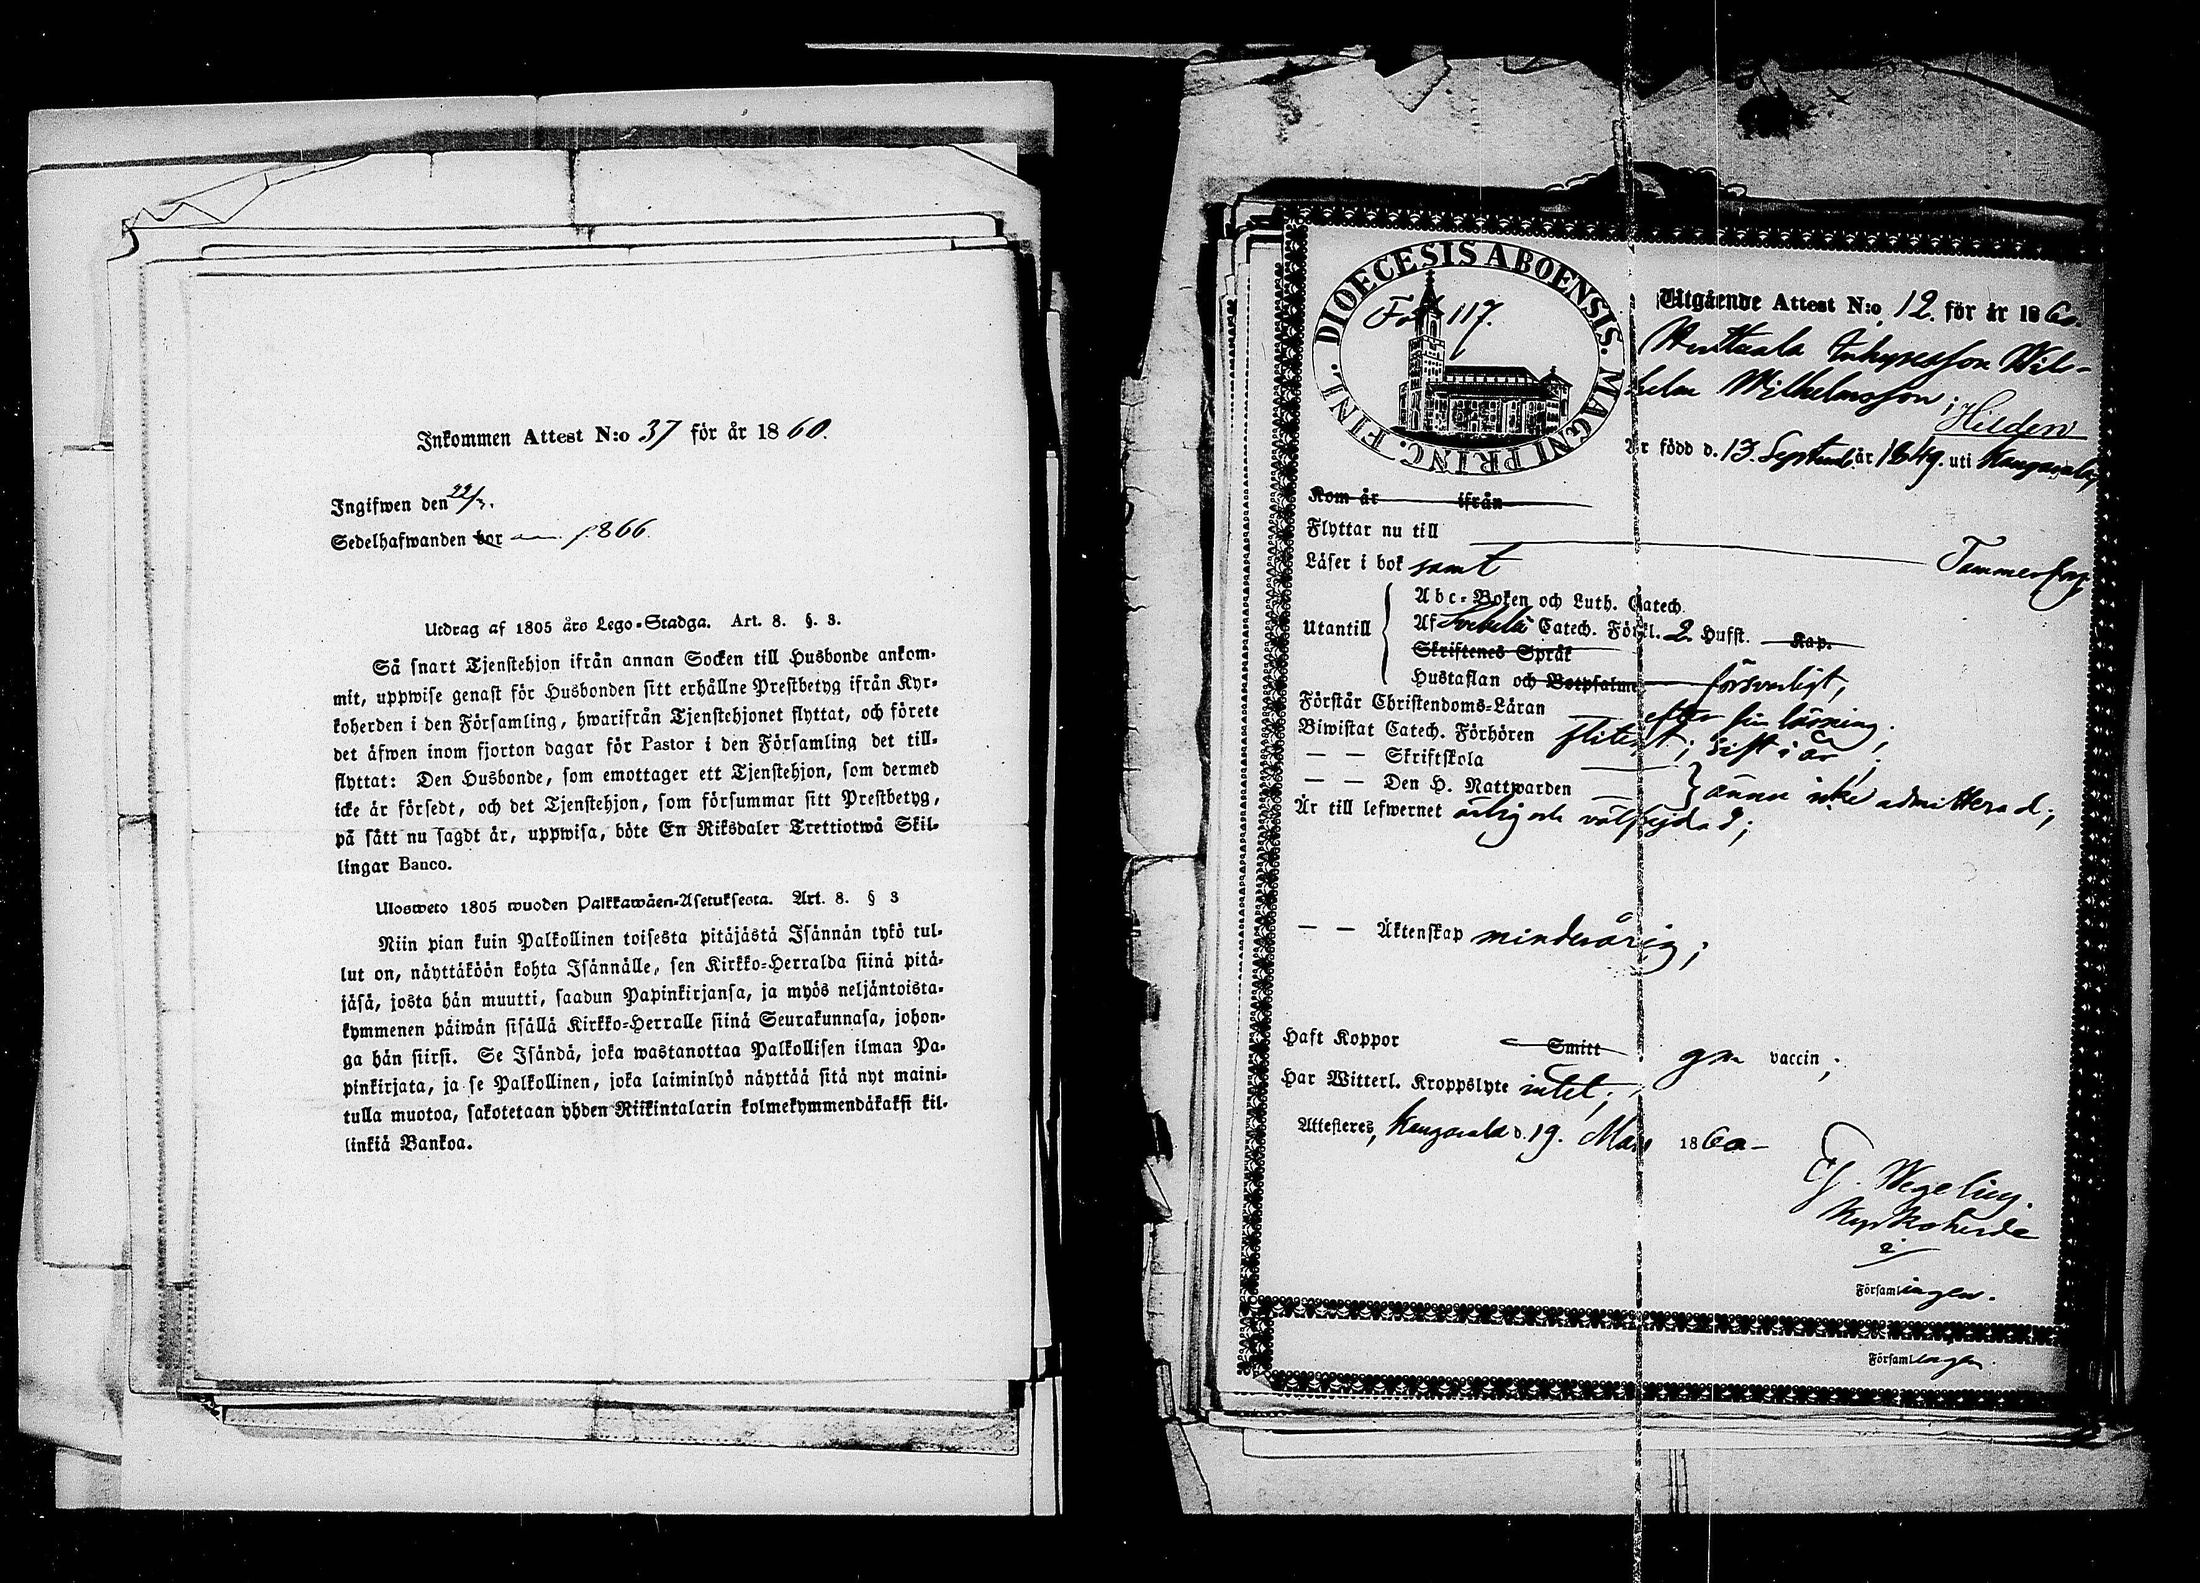 Inkommen Attest N:o 37 för år 1860.
Ingifwen den 22/3.
Sedelhafwanden bor p. 866.
Utdrag af 1805 års Lego-Stadga. Art. 8. §. 3.
Så snart Tjenstehjon ifrån annan Socken till Husbonde ankom-
mit, uppwise genast för Husbonden sitt erhållne Prestbetyg ifrån Kyr-
koherden i den Församling, hwarifrån Tjenstehjonet flyttat, och förete
det äfwen inom fjorton dagar för Pastor i den Församling det till-
flyttat: Den Husbonde, som emottager ett Tjenstehjon, som dermed
icke är försedt, och det Tjenstehjon, som försummar sitt Prestbetyg,
på sätt nu sagdt är, uppwisa, böte En Riksdaler Trettiotwå Skil-
lingar Banco.
Ulosweto 1805 wuoden Palkkawäen-Asetuksesta. Art. 8. § 3
Niin pian kuin Palkollinen toisesta pitäjästä Isännän tykö tul-
lut on, näyttäköön kohta Isännälle, sen Kirkko-Herralda siinä pitä-
jäsä, josta hän muutti, saadun Papinkirjansa, ja myös neljäntoista-
kymmenen päiwän sisällä Kirkko-Herralle siinä Seurakunnasa, johon-
ga hän siirsi. Se Isändä, joka wastanottaa Palkollisen ilman Pa-
pinkirjata, ja se Palkollinen, joka laiminlyö näyttää sitä nyt maini-
tulla muotoa, sakotetaan yhden Riikintalarin kolmekymmendäkaksi kil-
linkiä Bankoa.
DIOECESIS ABOENSIS. MAGNI PRINC. FINL.
Fol. 117.
Utgående Attest N:o 12. för år 1860.
Wil-
helm Wilhelmsson i
Hilden
Är född d. 13. Septemb. år 1849. uti Kangasala,
Kom år ifrån
Flyttar nu till
Tammerfors
Läser i bok samt
Utantill
Abc-Boken och Luth. Catech.
Af Svebelii Catech. Förkl. 2. Hufst. Kap.
Skriftenes Språk
Hustaflan och Botpsalme försvarligt,
Förstår Christendoms-Läran efter sin läsning.
Biwistat Catech. Förhören flitigt; sist i år;
— — Skriftskola
— — Den H. Nattwarden ännu icke admitterad;
Är till lefwernet ärlig och välfrejdad;
— — Äktenskap minderårig;
Haft Koppor Smitt gm vaccin;
Har Witterl. Kroppslyte intet;
Attesteres, Kangasala d. 19. Mars 1860 —
Wegelius.
Kyrkoherde
i
Församlingen.
Församlingen.